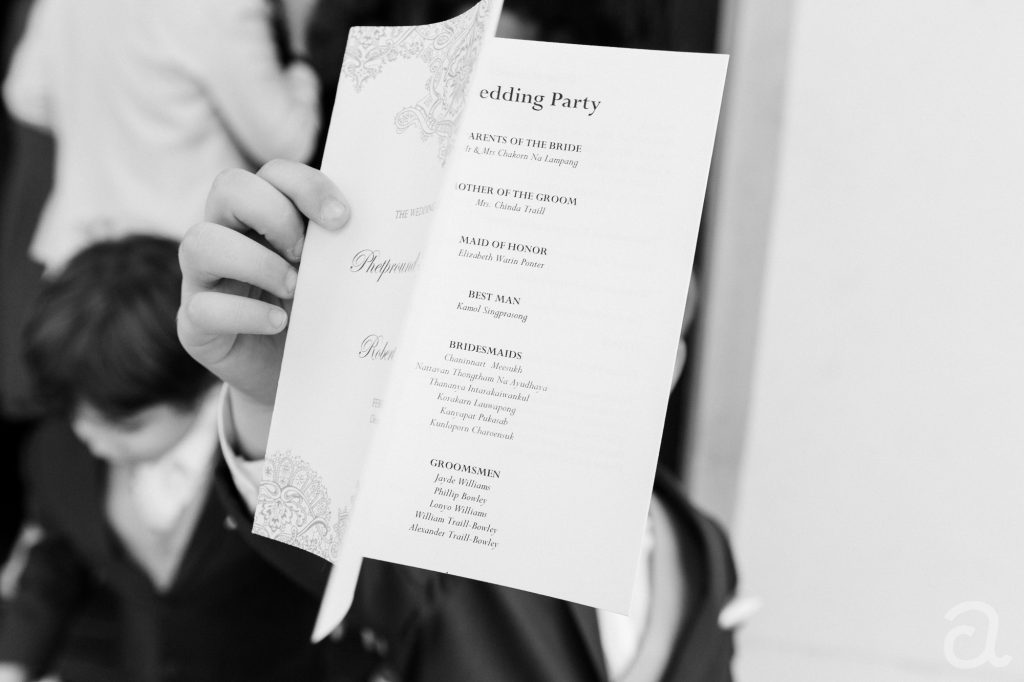 THE WEDDING
Phetpround
Robert
edding Party
ARENTS OF THE BRIDE
r & Mrs Chakorn Na Lampang
OTHER OF THE GROOM
Mrs. Chinda Traill
MAID OF HONOR
Elizabeth Warin Ponter
BEST MAN
Kamol Singprasong
BRIDESMAIDS
Chaninnart Meesukh
Nattayan Thongtham Na Ayudhaya
Thananya Intarakaiwankul
Korakarn Lauwapong
Kanyapat Pukasab
Kunlaporn Charoensuk
GROOMSMEN
Jayde Williams
Phillip Bowley
Lonyo Williams
William Traill-Bowley
Alexander Traill-Bowley
a